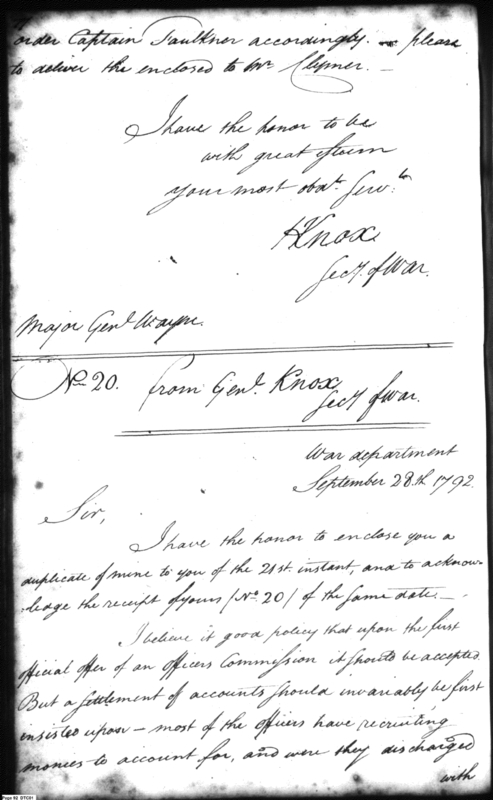 order Captain Faulkner accordingly. — please
to deliver the enclosed to Mr Clymer. —
I have the honor to be
with great esteem
your most obdt. Servt.
HKnox
Secy. of War.
Major Genl. Wayne.
No. 20. From Genl. Knox,
Secy of War.
War department
September 28.th 1792.
Sir,
I have the honor to enclose you a
duplicate of mine to you of the 21st. instant and to acknow-
ledge the receipt of yours (No. 20) of the same date. —
I believe it good policy that upon the first
official offer of an officers Commission it should be accepted.
But a settlement of accounts should invariably be first
insisted upon — most of the officers have recruiting
monies to account for, and were they discharged
with
Page 92 DTC01